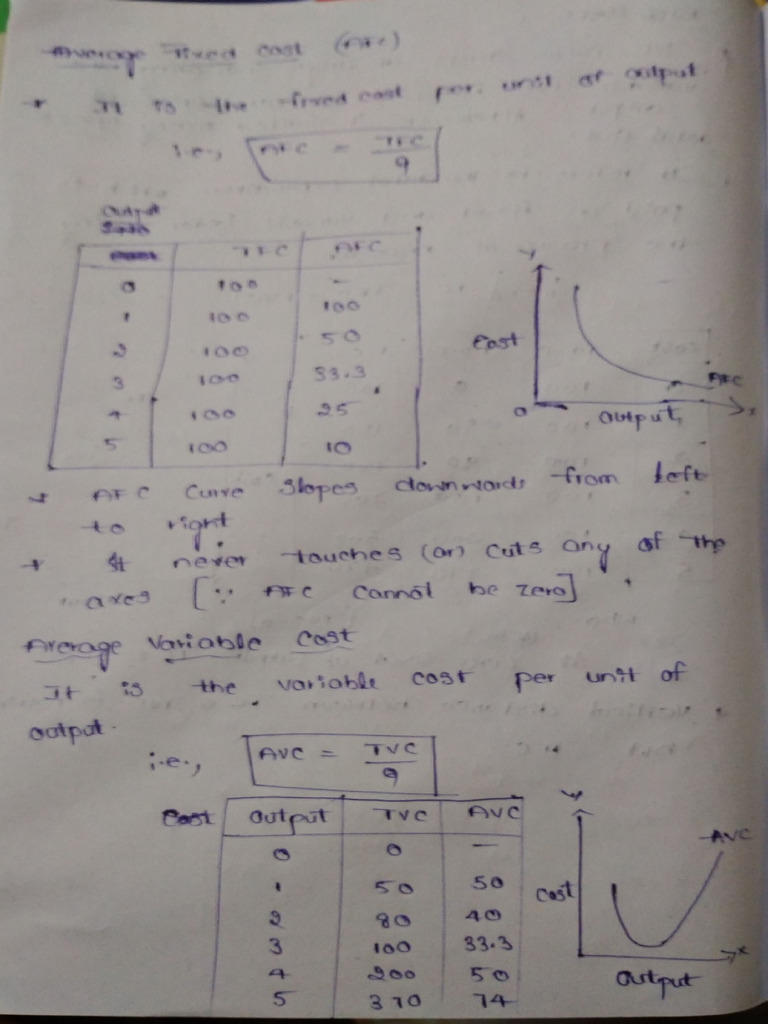 Average Fixed cost (AFC)
* It is the fixed cost per unit of output
i.e., AFC = TFC/q
Output
TFC AFC
0 100 -
1 100 100
2 100 50
3 100 33.3
4 100 25
5 100 10
Y
Cost
AFC
0 output x
* AFC curve slopes downwards from left
to right
* It never touches (or) cuts any of the
axes [∵ AFC cannot be zero]
Average Variable cost
It is the variable cost per unit of
output.
i.e., AVC = TVC/q
Cost Output TVC AVC
0 0 -
1 50 50
2 80 40
3 100 33.3
4 200 50
5 370 74
Y
AVC
Cost
x
Output